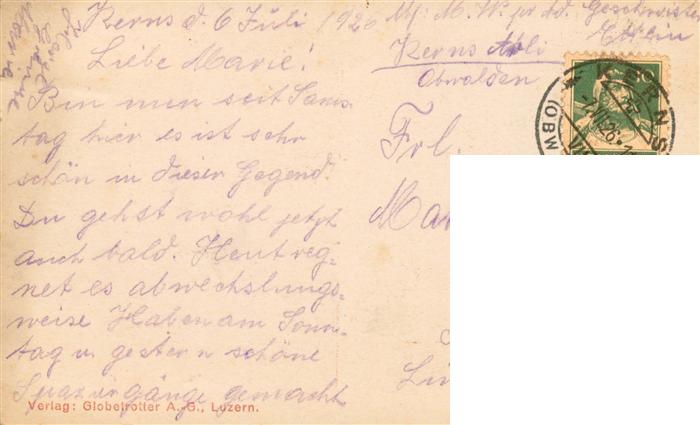 Kerns d. 6 Juli 1926
Liebe Marie!
Bin nun seit Sams-
tag hier es ist sehr
schön in dieser Gegend.
Du gehst wohl jetzt
auch bald. Heut reg-
net es abwechslungs-
weise Haben am Sonn-
tag u. gestern schöne
Spaziergänge gemacht
M. W. pr. Ad. Geschwister
Ettlin
Kerns
Obwalden
Frl.
Verlag: Globetrotter A.-G., Luzern.
KERNS
(OBW